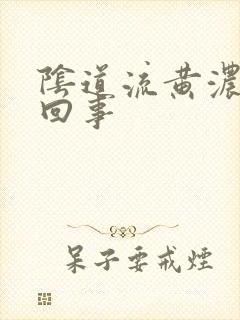 陰道流黃濃
回事
呆子要戒煙